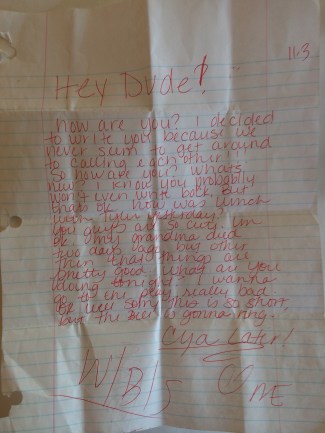 11.3
Hey Dude!
how are you? I decided
to write you because we
never seem to get around
to calling eachother!
so how are you? whats
new? I know you probably
won't even write back. but
thats ok. how was lunch
with your yesterday?
you guys are so cute. im
ok. my grandma died
two days ago. but other
then that things are
pretty good. what are you
doing tonight? I wanna
go to the play really bad.
ok well sorry this is so short,
but the bell is gonna ring.
Cya Later!
W/B/S